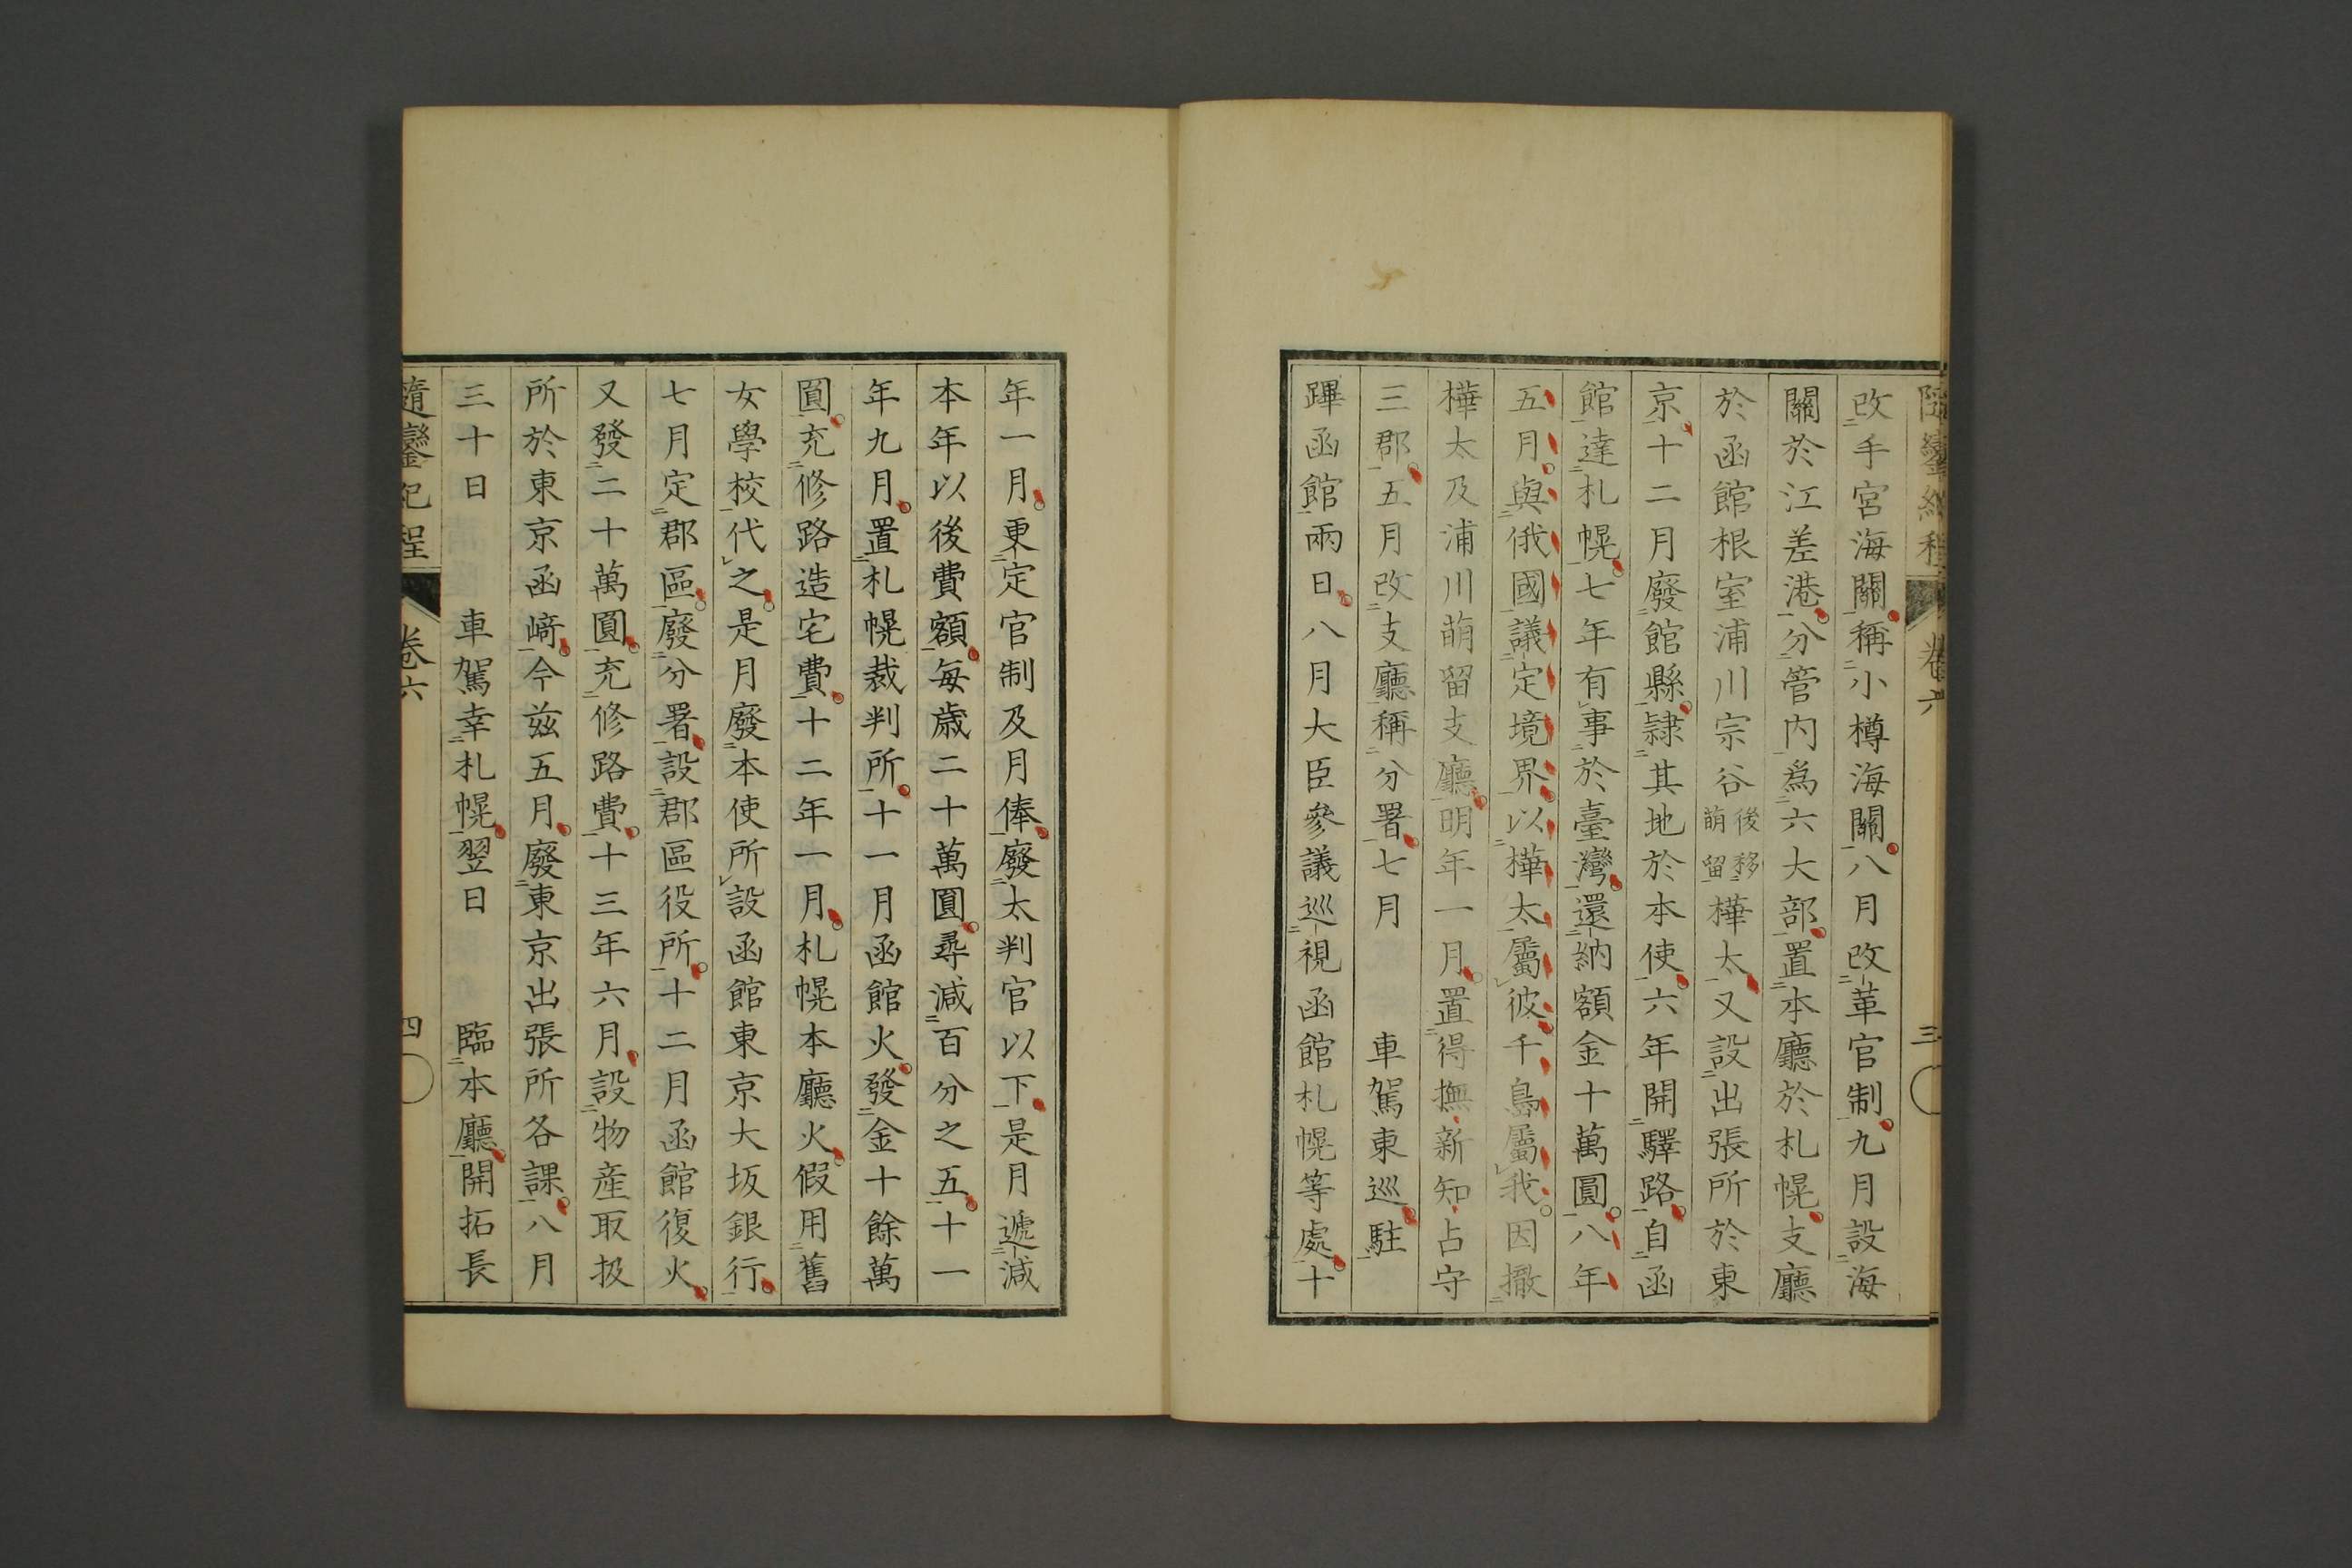 隨鑾紀程 卷六 三
改手宮海關稱小樽海關八月改革官制九月設海
關於江差港分管内爲六大部置本廳於札幌支廳
於函館根室浦川宗谷後移萌留樺太又設出張所於東
京十二月廢館縣隷其地於本使六年開驛路自函
館達札幌七年有事於臺灣還納額金十萬圓八年
五月與俄國議定境界以樺太屬彼千島屬我因撤
樺太及浦川萌留支廳明年一月置得撫新知占守
三郡五月改支廳稱分署七月 車駕東巡駐
蹕函館兩日八月大臣參議巡視函館札幌等處十
年一月更定官制及月俸廢太判官以下是月遞減
本年以後費額毎歳二十萬圓尋減百分之五十一
年九月置札幌裁判所十一月函館火發金十餘萬
圓充修路造宅費十二年一月札幌本廳火假用舊
女學校代之是月廢本使所設函館東京大坂銀行
七月定郡區廢分署設郡區役所十二月函館復火
又發二十萬圓充修路費十三年六月設物産取扱
所於東京函﨑今茲五月廢東京出張所各課八月
三十日 車駕幸札幌翌日 臨本廳開拓長
隨鑾紀程 卷六 四